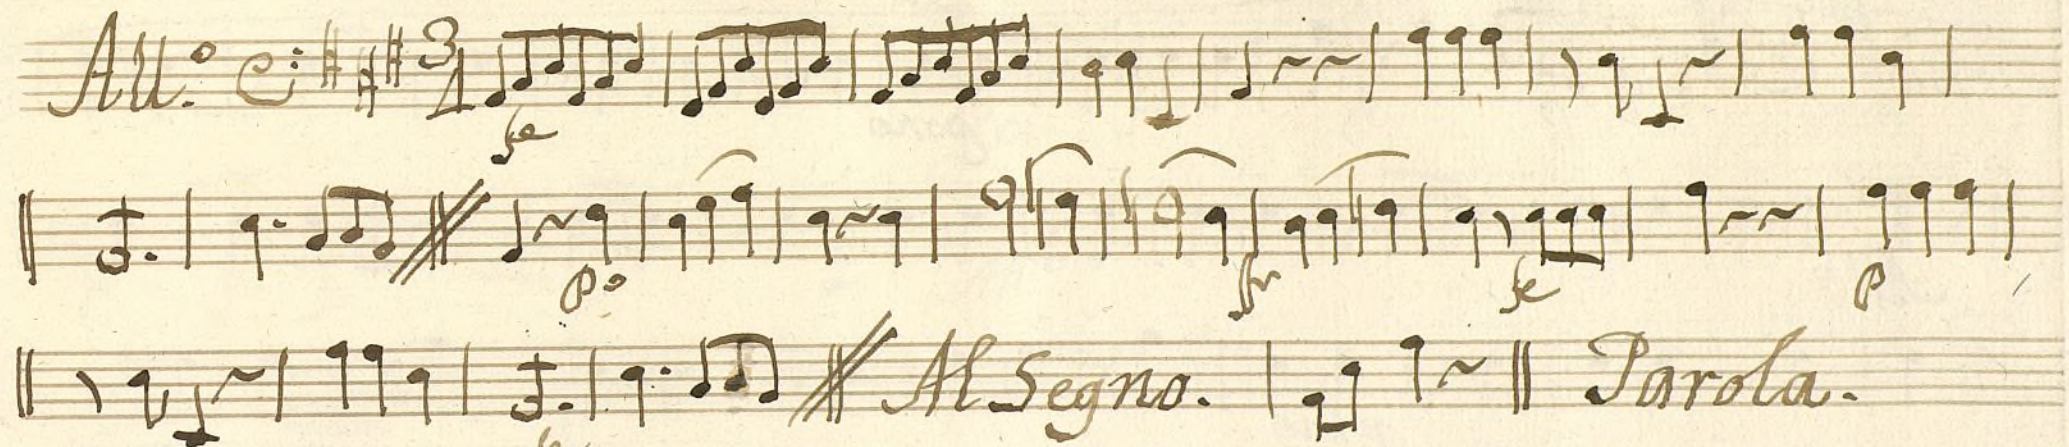 All.º 3/4
fe
Po fr fe P
Al Segno. Parola.